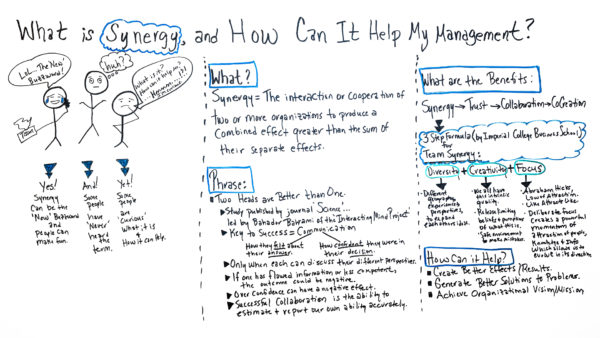 What is Synergy, and How Can It Help My Management?
LoL.. The New
Buzzword!
huh?
What is it?
How can it help my
Management?!!
Team
Yes!
Synergy
Can be the
'New' Buzzword
and
People can
make fun.
And!
Some
people
have
'Never'
heard
the
term.
Yet!
Some
people
are
'Curious'
What it is
&
How it can help.
What?
Synergy = The interaction or cooperation of
two or more organizations to produce a
combined effect greater than the sum of
their separate effects.
Phrase:
Two Heads are Better than One.
Study published by journal 'Science'...
led by Bahador Bahrami of the Interacting Mind Project
Key to Success = Communication
How they felt about their answer.
How confident they were in their decision.
Only when each can discuss their different perspectives.
If one has flawed information or less competent,
the outcome could be negative.
Over confidence can have a negative effect.
Successful Collaboration is the ability to
estimate + report our own ability accurately.
What are the Benefits:
Synergy → Trust → Collaboration → CoCreation
3 Step Formula (by Imperial College Business School)
for
Team Synergy:
Diversity + Creativity + Focus
Different
geography,
experiences,
perspectives,
to expand
each others ideas.
We all have
this intrinsic
quality.
Release limiting
beliefs + perceptions
of what this is.
Safe environment
to make mistakes.
Abraham Hicks,
Law of Attraction.
Like Attracts Like.
Deliberate focus
Creates a powerful
momentum of
attraction of people,
Knowledge & Info
evolve in its direction.
How Can it Help?
Create Better Effects/Results.
Generate Better Solutions to Problems.
Achieve Organizational Vision/Mission